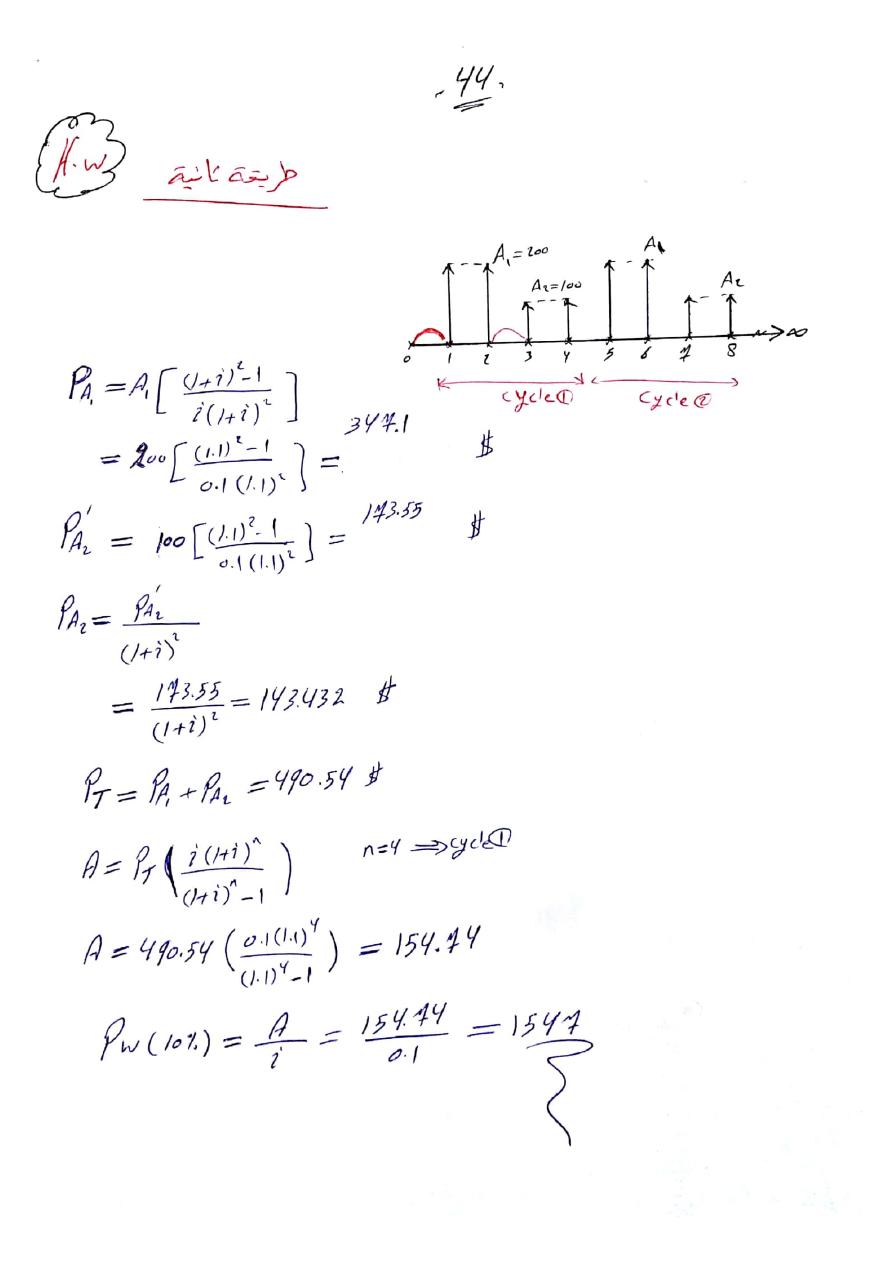 . 44 .
H.w
طريقة ثانية
A₁=200
A₂=100
A₁
A₂
0 1 2 3 4 5 6 7 8 ∞
cycle① cycle②
P_A₁ = A₁ [ ((1+i)²-1) / (i(1+i)²) ]
= 200 [ ((1.1)²-1) / (0.1(1.1)²) ] = 347.1 $
P'_A₂ = 100 [ ((1.1)²-1) / (0.1(1.1)²) ] = 173.55 $
P_A₂ = P'_A₂ / (1+i)²
= 173.55 / (1+i)² = 143.432 $
P_T = P_A₁ + P_A₂ = 490.54 $
A = P_T ( i(1+i)ⁿ / ((1+i)ⁿ-1) ) n=4 ⟹ cycle①
A = 490.54 ( 0.1(1.1)⁴ / ((1.1)⁴-1) ) = 154.74
Pw(10%) = A / i = 154.74 / 0.1 = 1547